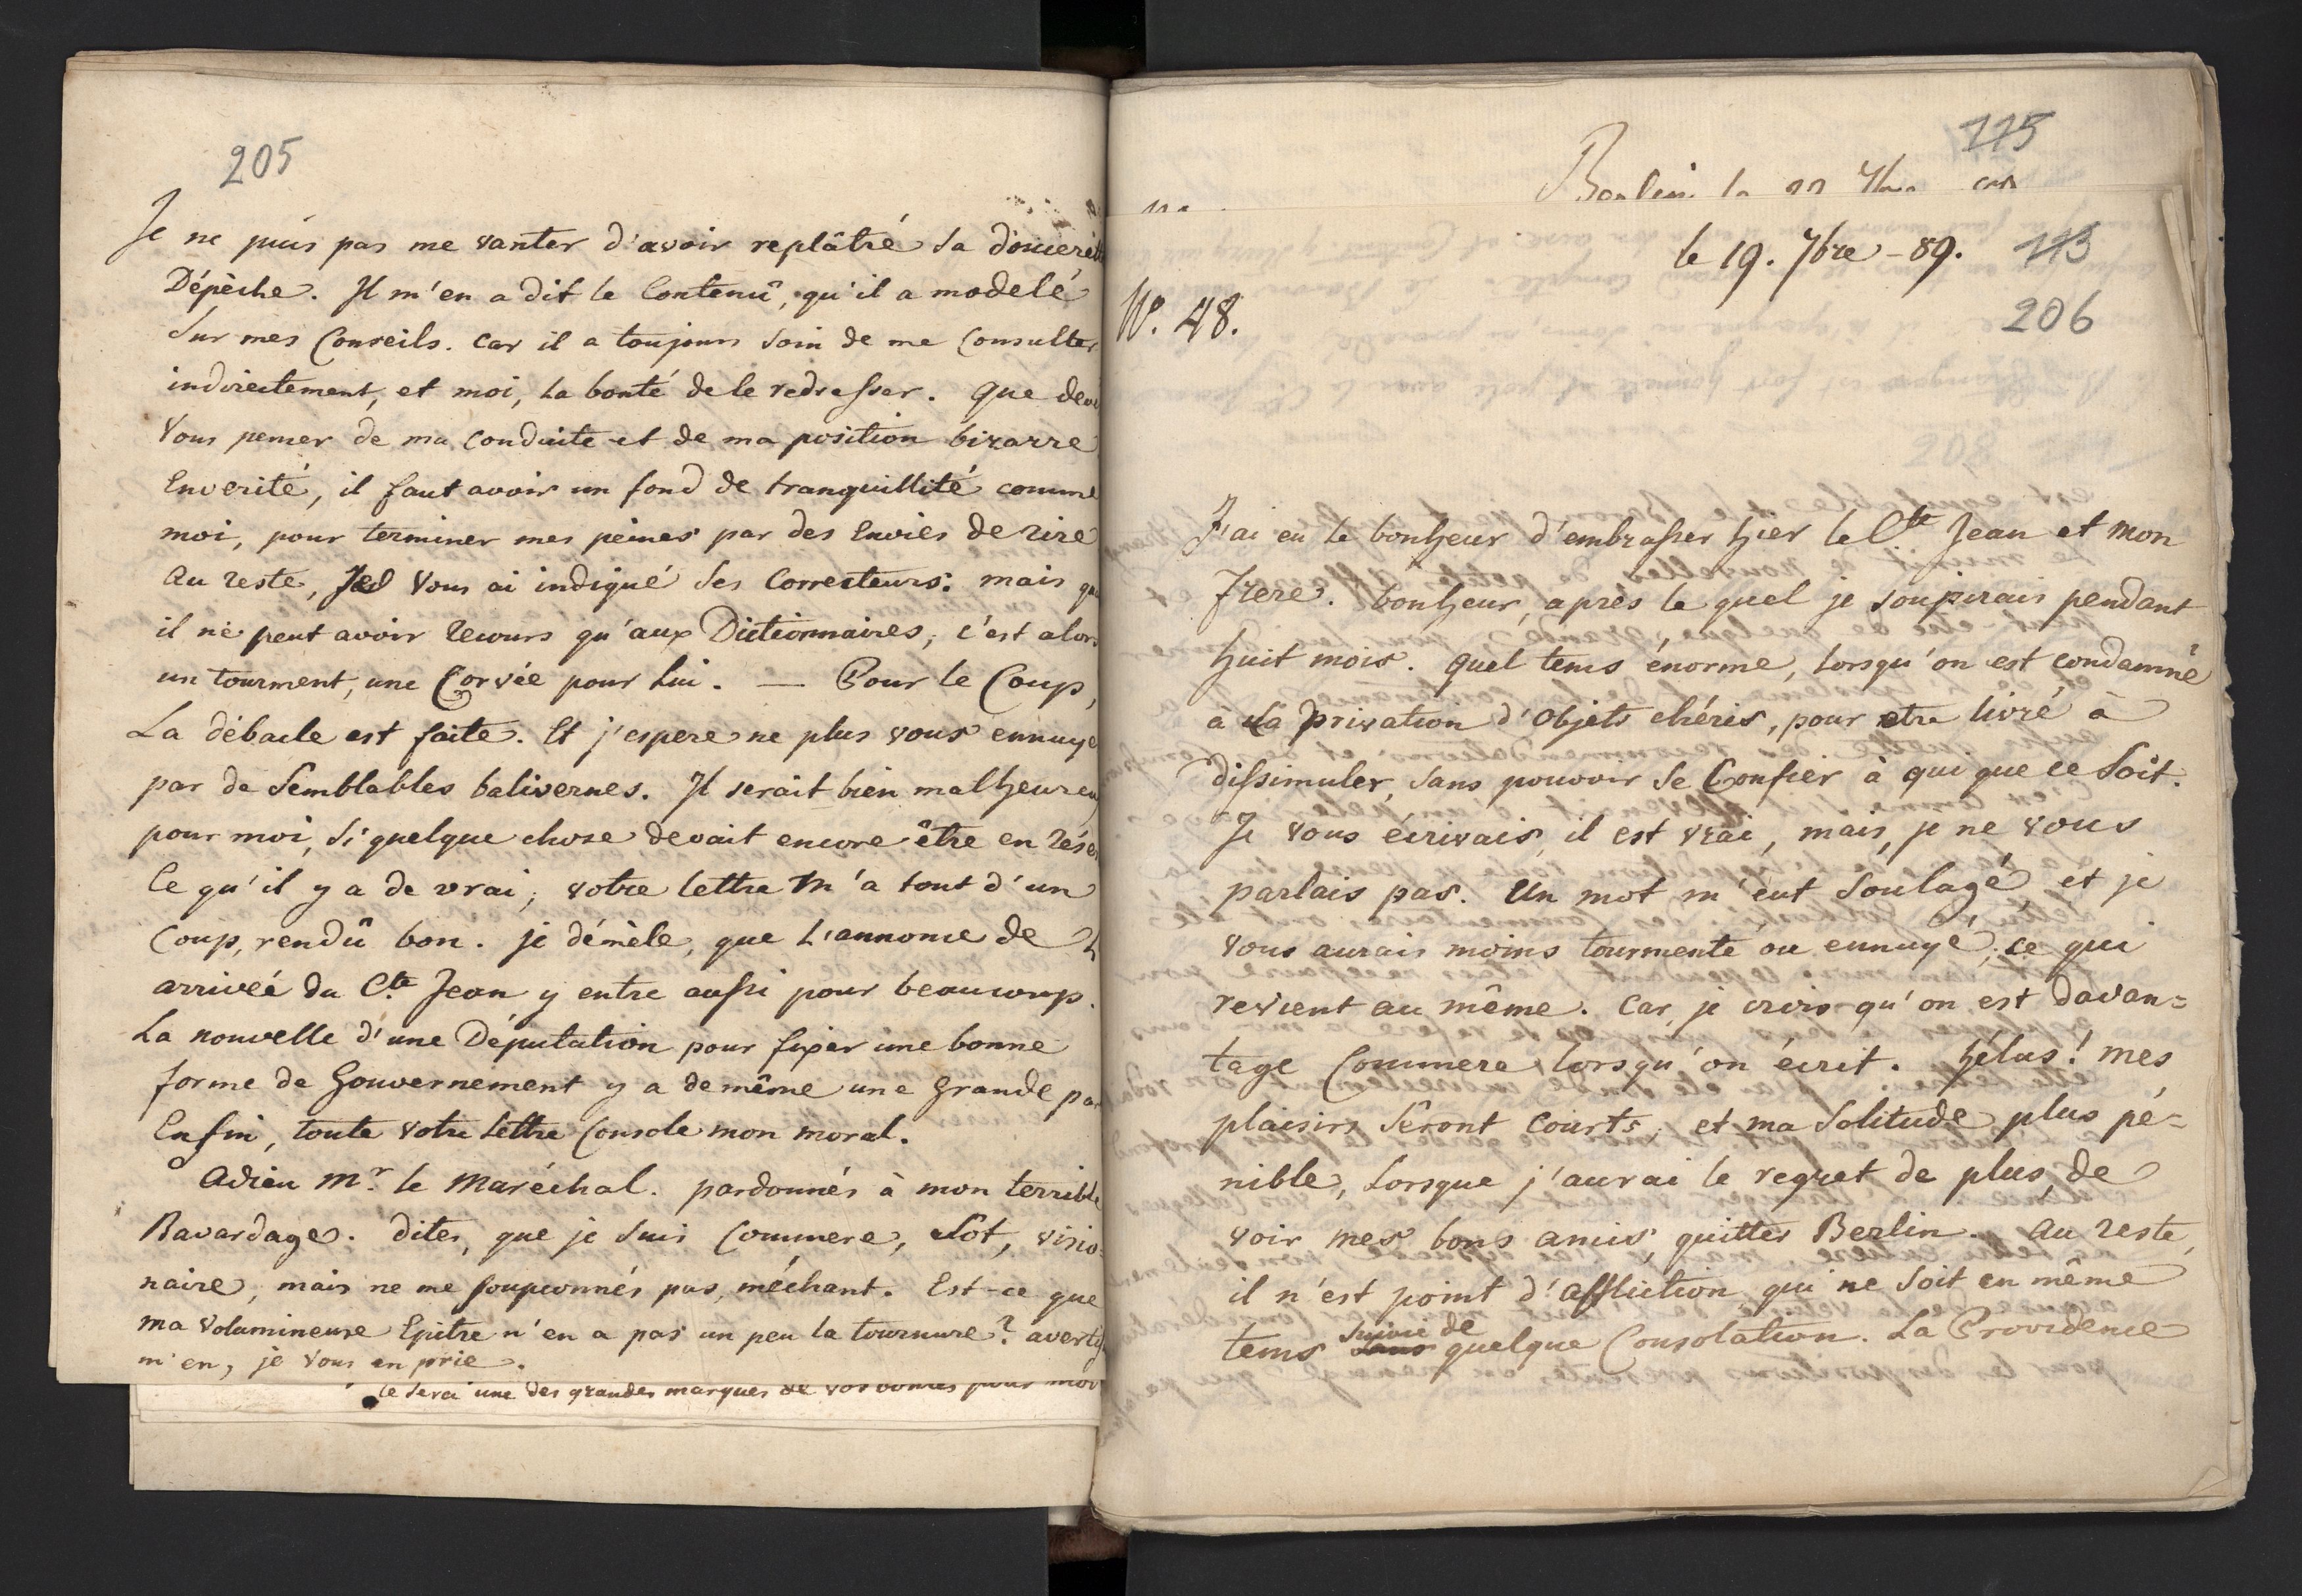 205
Je ne puis pas me vanter d'avoir replâtré sa
Dépèche. Il m'en a dit le Contenû, qu'il a modelé
sur mes Conseils. car il a toujours soin de me Consulter
indirectement, et moi, la bonté de le redresser. Que
Vous penser de ma conduite et de ma position bizarre
Enverité, il faut avoir un fond de tranquillité comme
moi, pour terminer mes peines par des Envies de rire
Au reste, Je Vous ai indiqué ses Correcteurs: mais
il ne peut avoir recours qu'aux Dictionnaires, c'est alors
un tourment, une Corvée pour lui. — Pour le Coup,
La débacle est faite. Et j'espere ne plus vous
par de semblables balivernes. Il serait bien
pour moi, si quelque chose devait encore être en
Ce qu'il y a de vrai, votre lettre m'a tout d'un
Coup, rendû bon. je démèle, que L'annonce de
arriveé du Cte Jean y entre aussi pour beaucoup.
La nouvelle d'une Députation pour fixer une bonne
forme de Gouvernement y a de même une grande
Enfin, toute votre lettre Console mon moral.
Adieu Mr. le Maréchal. pardonnés à mon terrible
Bavardage. dites, que je suis Commere, sôt, visio
naire, mais ne me soupconnés pas, méchant. Est-ce que
ma volumineuse Epitre n'en a pas un peu la tournure?
m'en, je vous en prie.
Ce sera une des grandes marques de vos bontés pour moi
115
Berlin
le 19. 7bre - 89. 113
No. 48.
206
J'ai eu le bonheur d'embrasser hier le Cte Jean et mon
Frere. bonheur, après le quel je soupirais pendant
huit mois. Quel tems énorme, lorsqu'on est condamné
à la privation d'objets chéris, pour etre livré à
dissimuler, sans pouvoir se Confier à qui que ce soit.
Je vous écrivais, il est vrai, mais, je ne vous
parlais pas. Un mot m'eut soulagé, et je
vous aurais moins tourmenté ou ennuyé, ce qui
revient au même. Car, je crois qu'on est davan=
tage Commere lorsqu'on écrit. hélas! mes
plaisirs sêront courts, et ma solitude plus pé=
nible, Lorsque j'aurai le regret de plus, de
voir mes bons amis, quitter Berlin. Au reste,
il n'est point d'affliction qui ne soit en même
tems suivie de quelque Consolation. La Providence